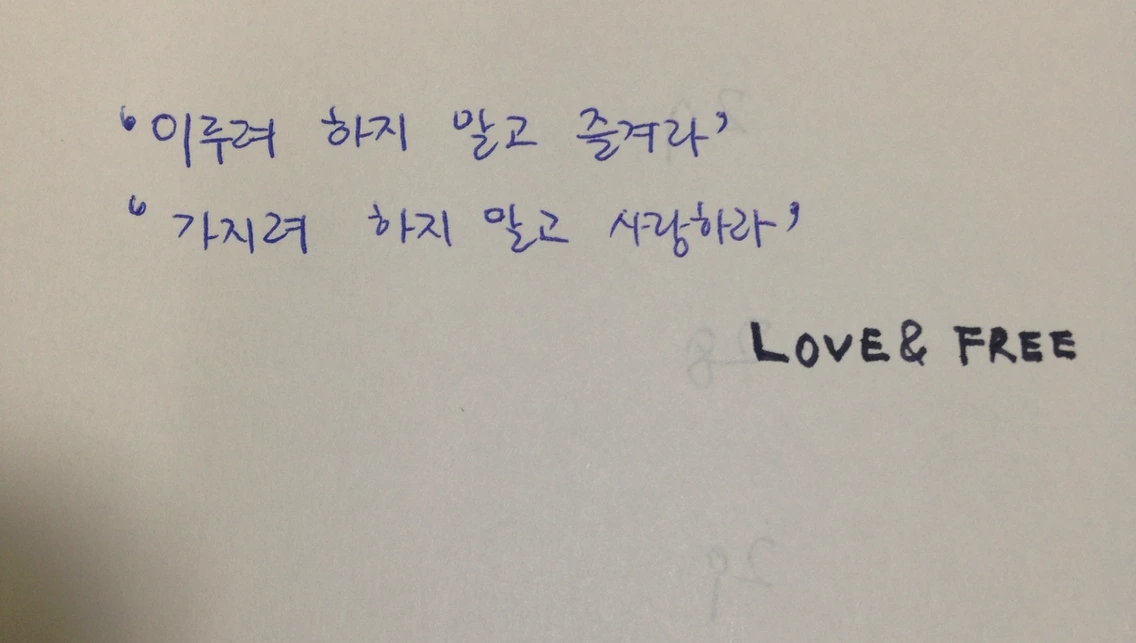 '이루려 하지 말고 즐겨라'
'가지려 하지 말고 사랑하라'
LOVE & FREE